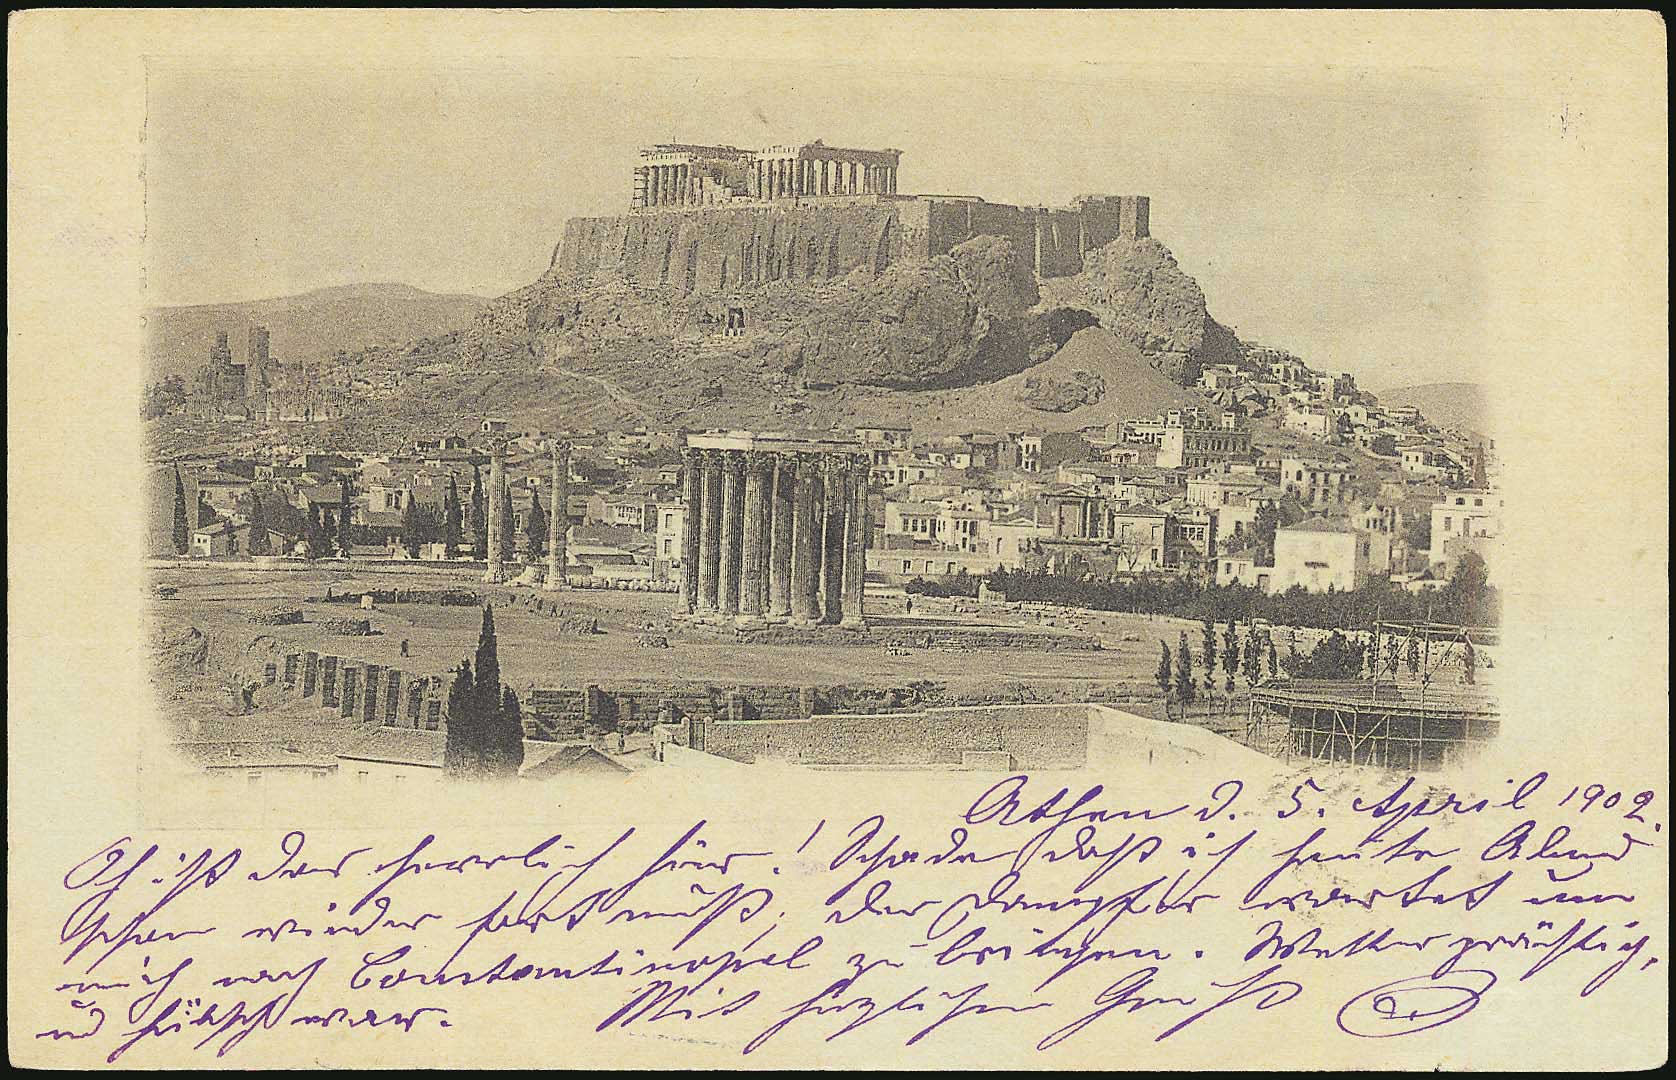 Athen d. 5. April 1902.
Ach ist das herrlich hier! Schade daß ich heute Abend
schon wieder fort muß, der Dampfer wartet um
mich nach Constantinopel zu bringen. Wetter prächtig,
u hübsch war.
Mit herzlichem Gruß